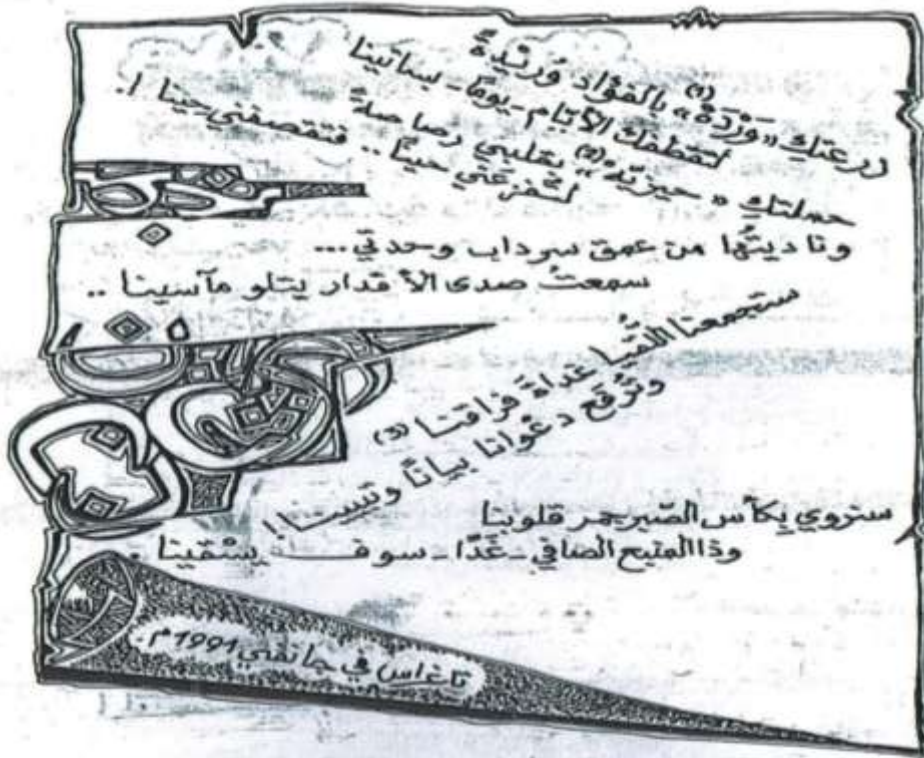 زرعتكِ «وَرْدَةً» (1) بالفؤاد وُرَيْدةً
لتقطفكِ الأيّام - يومًا - بساتينا
حملتكِ «حيزيّة» (2) بقلبي رصاصةً
لتفزعني حينًا .. فتقصفني حينا !.
وناديتُها من عمق سرداب وحدتي ...
سمعتُ صدى الأقدار يتلو مآسينا ..
ستجمعنا اللقيا غداةَ فراقنا (3)
وتُرفع دعْوانا بيانًا وتبيينا !
سنروي بكأس الصّبر جمر قلوبنا
وذا المنبع الصافي - غدًا - سوف يسْقينا .
في جانفي 1991 م.